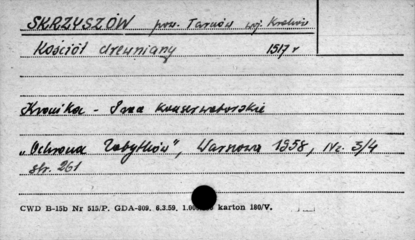 SKRZYSZÓW pow. Tarnów woj. Kraków
Kościół drewniany 1517 r
Kronika - Prace konserwatorskie
„Ochrona Zabytków”, Warszawa 1958, nr. 3/4
str. 261
CWD B-15b Nr 515/P. GDA-809. 6.3.59. karton 180/V.